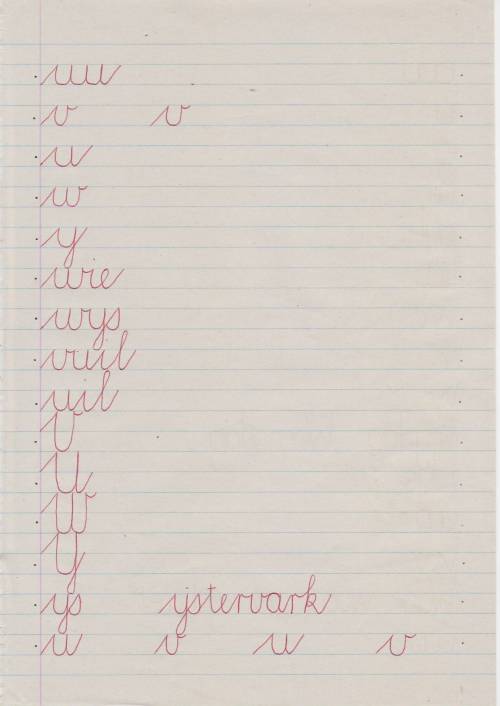 uu
v v
u
w
y
wie
wys
vuil
uil
V
U
W
Y
ys ystervark
u v u v